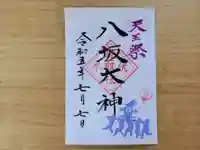 天王祭
八坂大神
令和五年七月七日